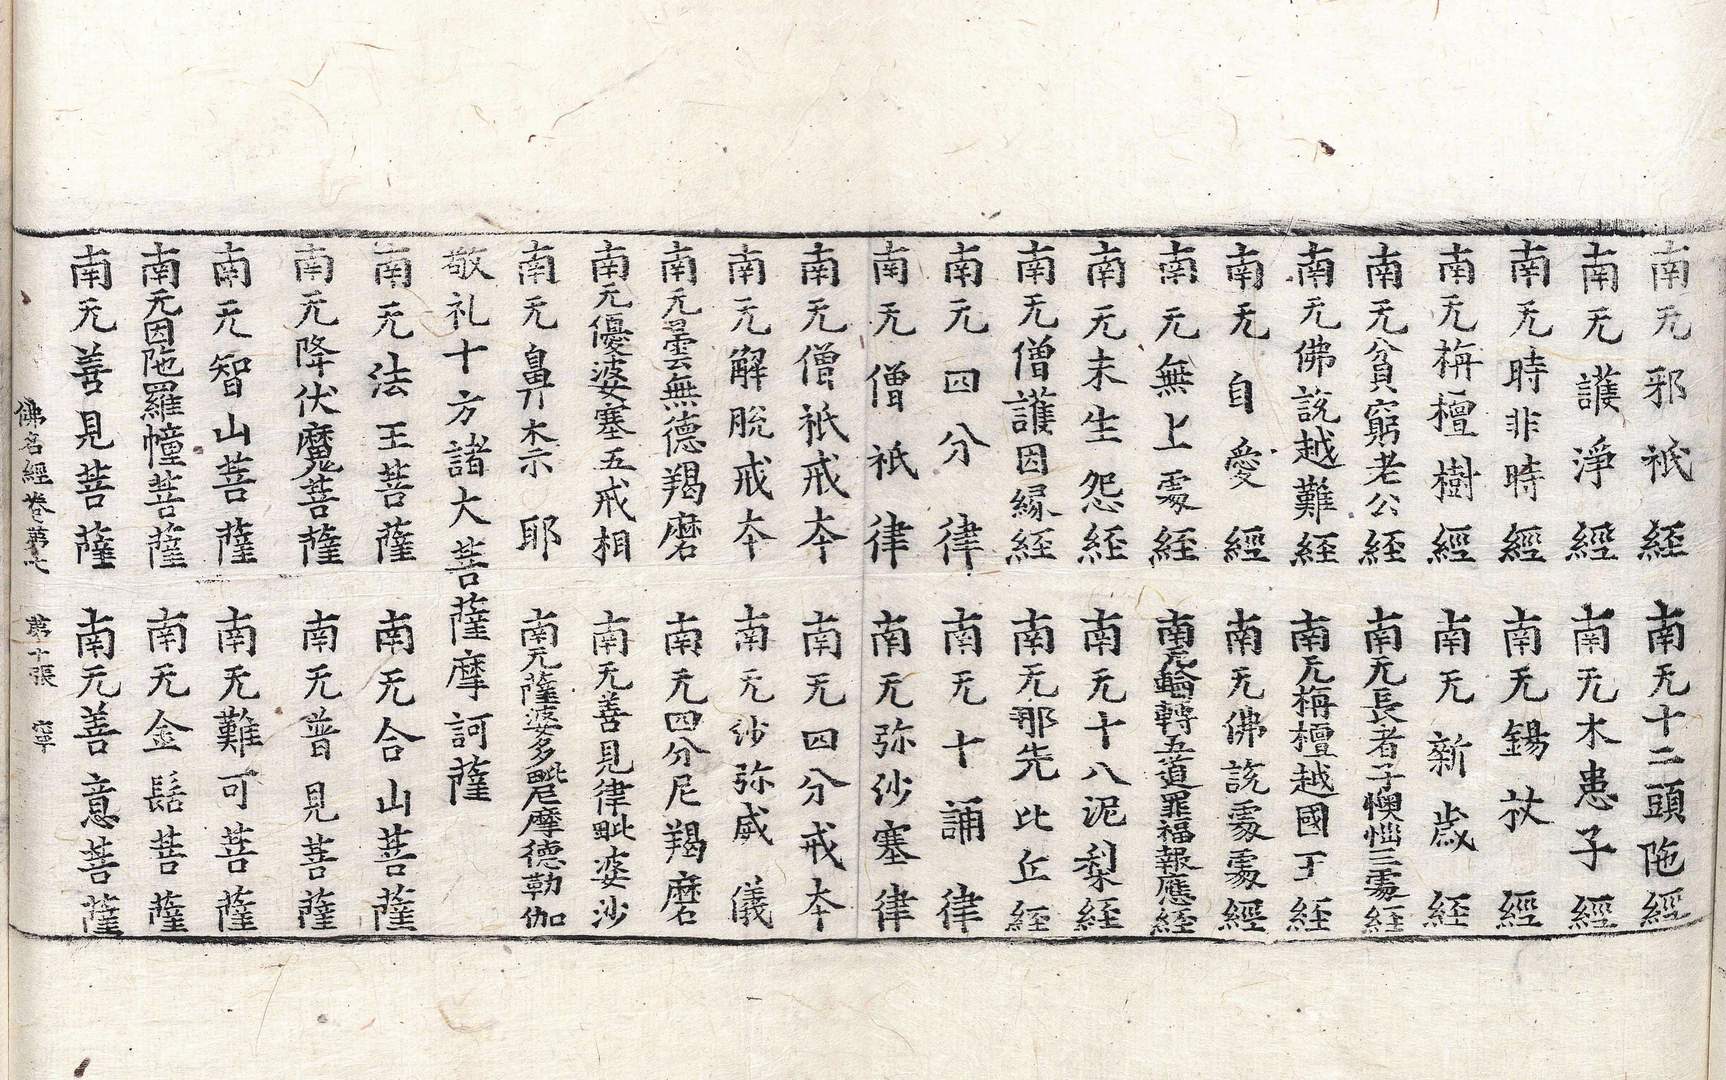 南无邪祇経 南无十二頭陁経
南无護淨經 南无木患子經
南无時非時經 南无錫杖經
南无栴檀樹經 南无新歲経
南无貧窮老公経 南无長者子懊惱三䖏経
南无佛說越難経 南无栴檀越國王経
南无自愛經 南无佛說䖏䖏經
南无無上䖏経 南无輪轉五道罪福報應経
南无未生怨経 南无十八泥梨経
南无僧護因緣経 南无那先比丘経
南无四分律 南无十誦律
南无僧祇律 南无弥沙塞律
南无僧祇戒本 南无四分戒本
南无解脫戒本 南无沙弥威儀
南无曇無德羯磨 南无四分尼羯磨
南无優婆塞五戒相 南无善見律毗婆沙
南无鼻柰耶 南无薩婆多毗尼摩德勒伽
敬礼十方諸大菩薩摩訶薩
南无法王菩薩 南无合山菩薩
南无降伏魔菩薩 南无普見菩薩
南无智山菩薩 南无難可菩薩
南无因陁羅幢菩薩 南无金髻菩薩
南无善見菩薩 南无善意菩薩
佛名経卷第七 第十張 寧